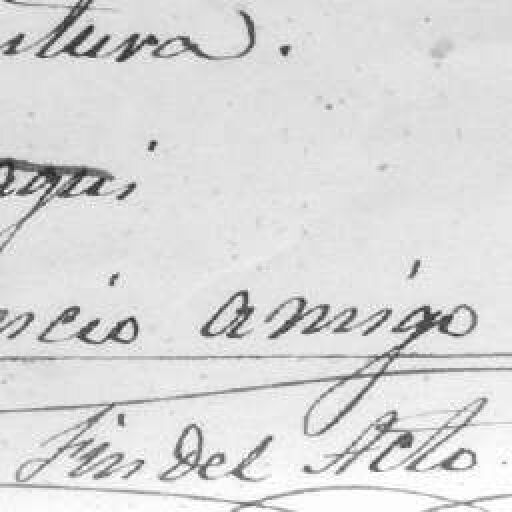 ntura).
aqui
ncio amigo
Fin del Acto.